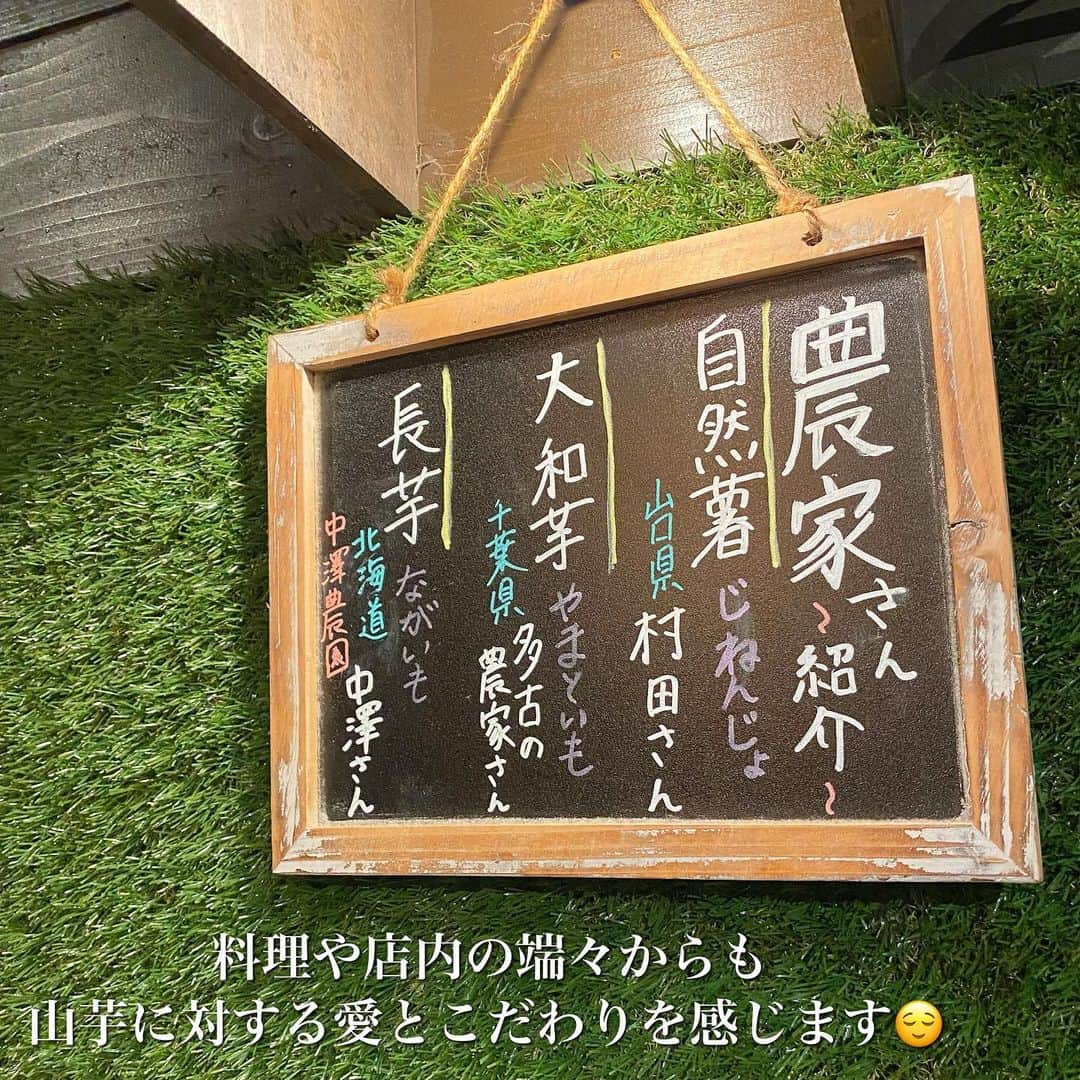 農家さん
～紹介～
自然薯 じねんじょ
山口県 村田さん
大和芋 やまといも
千葉県 多古の
農家さん
長芋 ながいも
北海道 中澤さん
中澤農園
料理や店内の端々からも
山芋に対する愛とこだわりを感じます😌